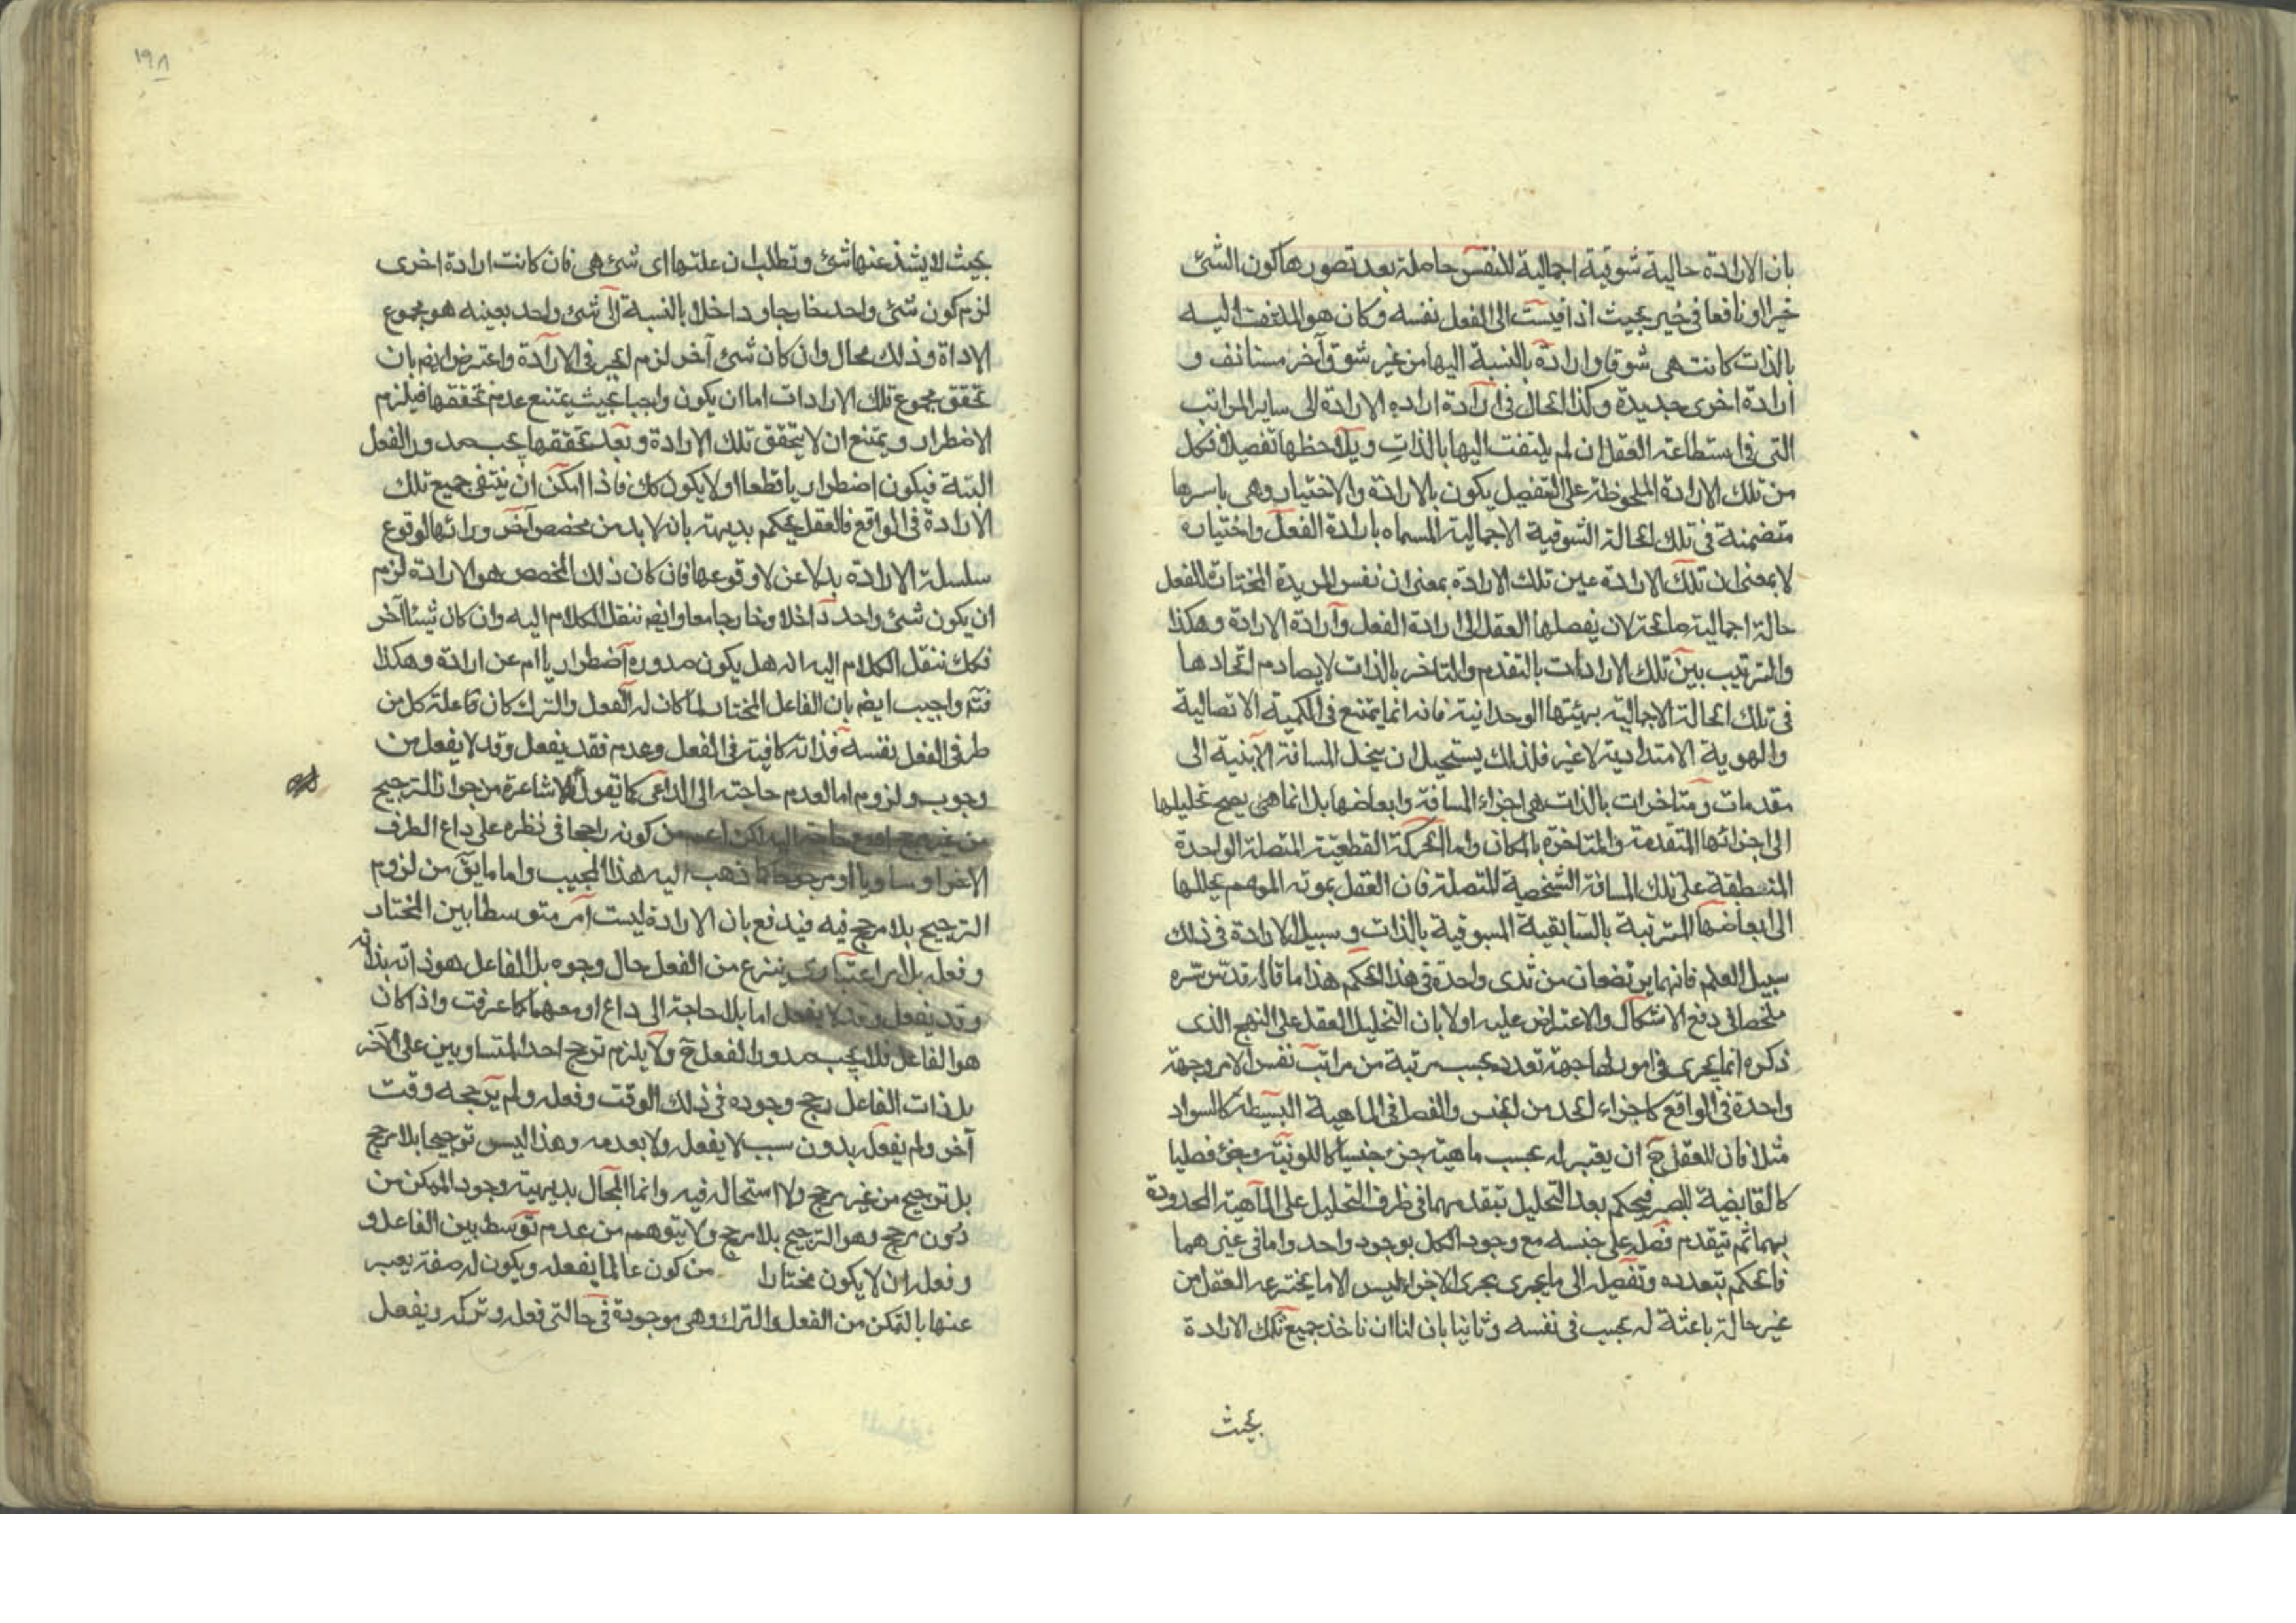 بان الارادة حالية شوقية اجمالية للنفس حاصلة بعد تصورها كون الشئ
خيرا او نافعا فى خير بحيث اذا قيست الى الفعل نفسه وكان هو الملتفت اليه
بالذات كانت هى شوقا وارادة بالنسبة اليها من غير شوق آخر مستانف و
ارادة اخرى جديدة وكذا الحال فى ارادة ارادة الارادة الى ساير المراتب
التى فى استطاعة العقل ان لم يلتفت اليها بالذات ويلاحظها تفصيلا فكل
من تلك الارادة الملحوظة على التفصيل يكون بالارادة والاختيار وهى باسرها
متضمنة فى تلك الحالة الشوقية الاجمالية المسماه بارادة الفعل واختياره
لا بمعنى ان تلك الارادة عين تلك الارادة بمعنى ان نفس المريدة المختارة للفعل
حالة اجمالية صالحة لان يفصلها العقل الى ارادة الفعل وارادة الارادة وهكذا
والترتيب بين تلك الارادات بالتقدم والتاخر بالذات لا يصادم اتحادها
فى تلك الحالة الاجمالية بهيئتها الوحدانية فانه انما يمتنع فى الكمية الاتصالية
والهوية الامتدادية لا غير فلذلك يستحيل ان ينحل المسافة الاينية الى
مقدمات ومتاخرات بالذات هى اجزاء المسافة وابعاضها بل انما هى يصح تحليلها
الى اجزائها المتقدمة والمتاخرة بالمكان واما الحركة القطعية المتصلة الواحدة
المنطبقة على تلك المسافة الشخصية المتصلة فان العقل بمونة الموهم يحللها
الى ابعاضها المترتبة بالسابقية المسبوقية بالذات وسبيل الارادة فى ذلك
سبيل العلم فانهما يرتضعان من ثدى واحدة فى هذا الحكم هذا ما قاله قدس سره
ملخصا فى دفع الاشكال والاعتراض عليه اولا بان التحليل العقل على النهج الذى
ذكره انما يجرى فى امور لها جهة تعدد بحسب مرتبة من مراتب نفس الامر وجهة
واحدة فى الواقع كاجزاء الحد من الجنس والفصل فى الماهية البسيطة كالسواد
مثلا فان للعقل ح ان يعتبر له بحسب ماهية جزء جنسيا كاللونية وجزء فصليا
كالقابضية للبصر فيحكم بعد التحليل بتقدمهما فى ظرف التحليل على الماهية المحدودة
بهما ثم يتقدم فصله على جنسه مع وجود الكل بوجود واحد واما فى غيرهما
فالحكم بتعدده وتفصيله الى ما يجرى مجرى الاجزاء ليس الا ما يخترعه العقل من
غير حالة باعثة له بحسب فى نفسه وثانيا بان لنا ان ناخذ جميع تلك الارادة
بحيث
١٩٨
بحيث لا يشذ عنها شئ وتطلب ان علتها اى شئ هى فان كانت ارادة اخرى
لزم كون شئ واحد خارجا وداخلا بالنسبة الى شئ واحد بعينه هو مجموع
الاداة وذلك محال وان كان شئ آخر لزم الجبر فى الارادة واعترض ايضم بان
تحقق مجموع تلك الارادات اما ان يكون واجبا بحيث يمتنع عدم تحققها فيلزم
الاضطرار ويمتنع ان لا يتحقق تلك الارادة وبعد تحققها يجب صدور الفعل
البتة فيكون اضطراريا قطعا او لا يكون كك فاذا امكن ان ينتفى جميع تلك
الارادة فى الواقع فالعقل يحكم بديهة بانه لا بد من مخصص آخر ورائها لوقوع
سلسلة الارادة بدلا عن لا وقوعها فان كان ذلك المخصص هو الارادة لزم
ان يكون شئ واحد داخلا وخارجا معا وايضم ننقل الكلام اليه وان كان شيئا آخر
فكك ننقل الكلام اليه انه هل يكون صدوره اضطراريا ام عن ارادة وهكذا
فتم واجيب ايضم بان الفاعل المختار لما كان له الفعل والترك كان فاعلة كل من
طرفى الفعل نفسه فذاته كافية فى الفعل وعدم فقد يفعل وقد لا يفعل من
وجوب ولزوم اما لعدم حاجته الى الداعى كما تقول الاشاعرة من جواز الترجيح
من غير مرجح او مع حاجته اليه لكن اعم من كونه راجحا فى نظره على داع الطرف
الاخر او مساويا او مرجوحا كما ذهب اليه هذا المجيب واما ما يق من لزوم
الترجيح بلا مرجح فيه فيدفع بان الارادة ليست امر متوسطا بين المختار
وفعله بل امر اعتبارى ينتزع من الفعل حال وجوه بل الفاعل هو ذاته بذاته
وقد يفعل وقد لا يفعل اما بلا حاجة الى داع او معهما كما عرفت واذا كان
هو الفاعل فلا يجب صدور الفعل ح ولا يلزم ترجح احد المتساويين على الآخر
بل ذات الفاعل رجح وجوده فى ذلك الوقت وفعله ولم يرجحه وقت
آخر ولم يفعله بدون سبب لا يفعله ولا بعدمه وهذا ليس ترجيحا بلا مرجح
بل ترجيح من غير مرجح ولا استحاله فيه وانما المحال بديهية وجود الممكن من
دون مرجح وهو الترجيح بلا مرجح ولا يتوهم من عدم توسط بين الفاعل و
وفعله ان لا يكون مختارا من كون عالما بفعله ويكون له صفة يعبر
عنها بالتمكن من الفعل والترك وهى موجودة فى حالتى فعله وتركه ويفعل